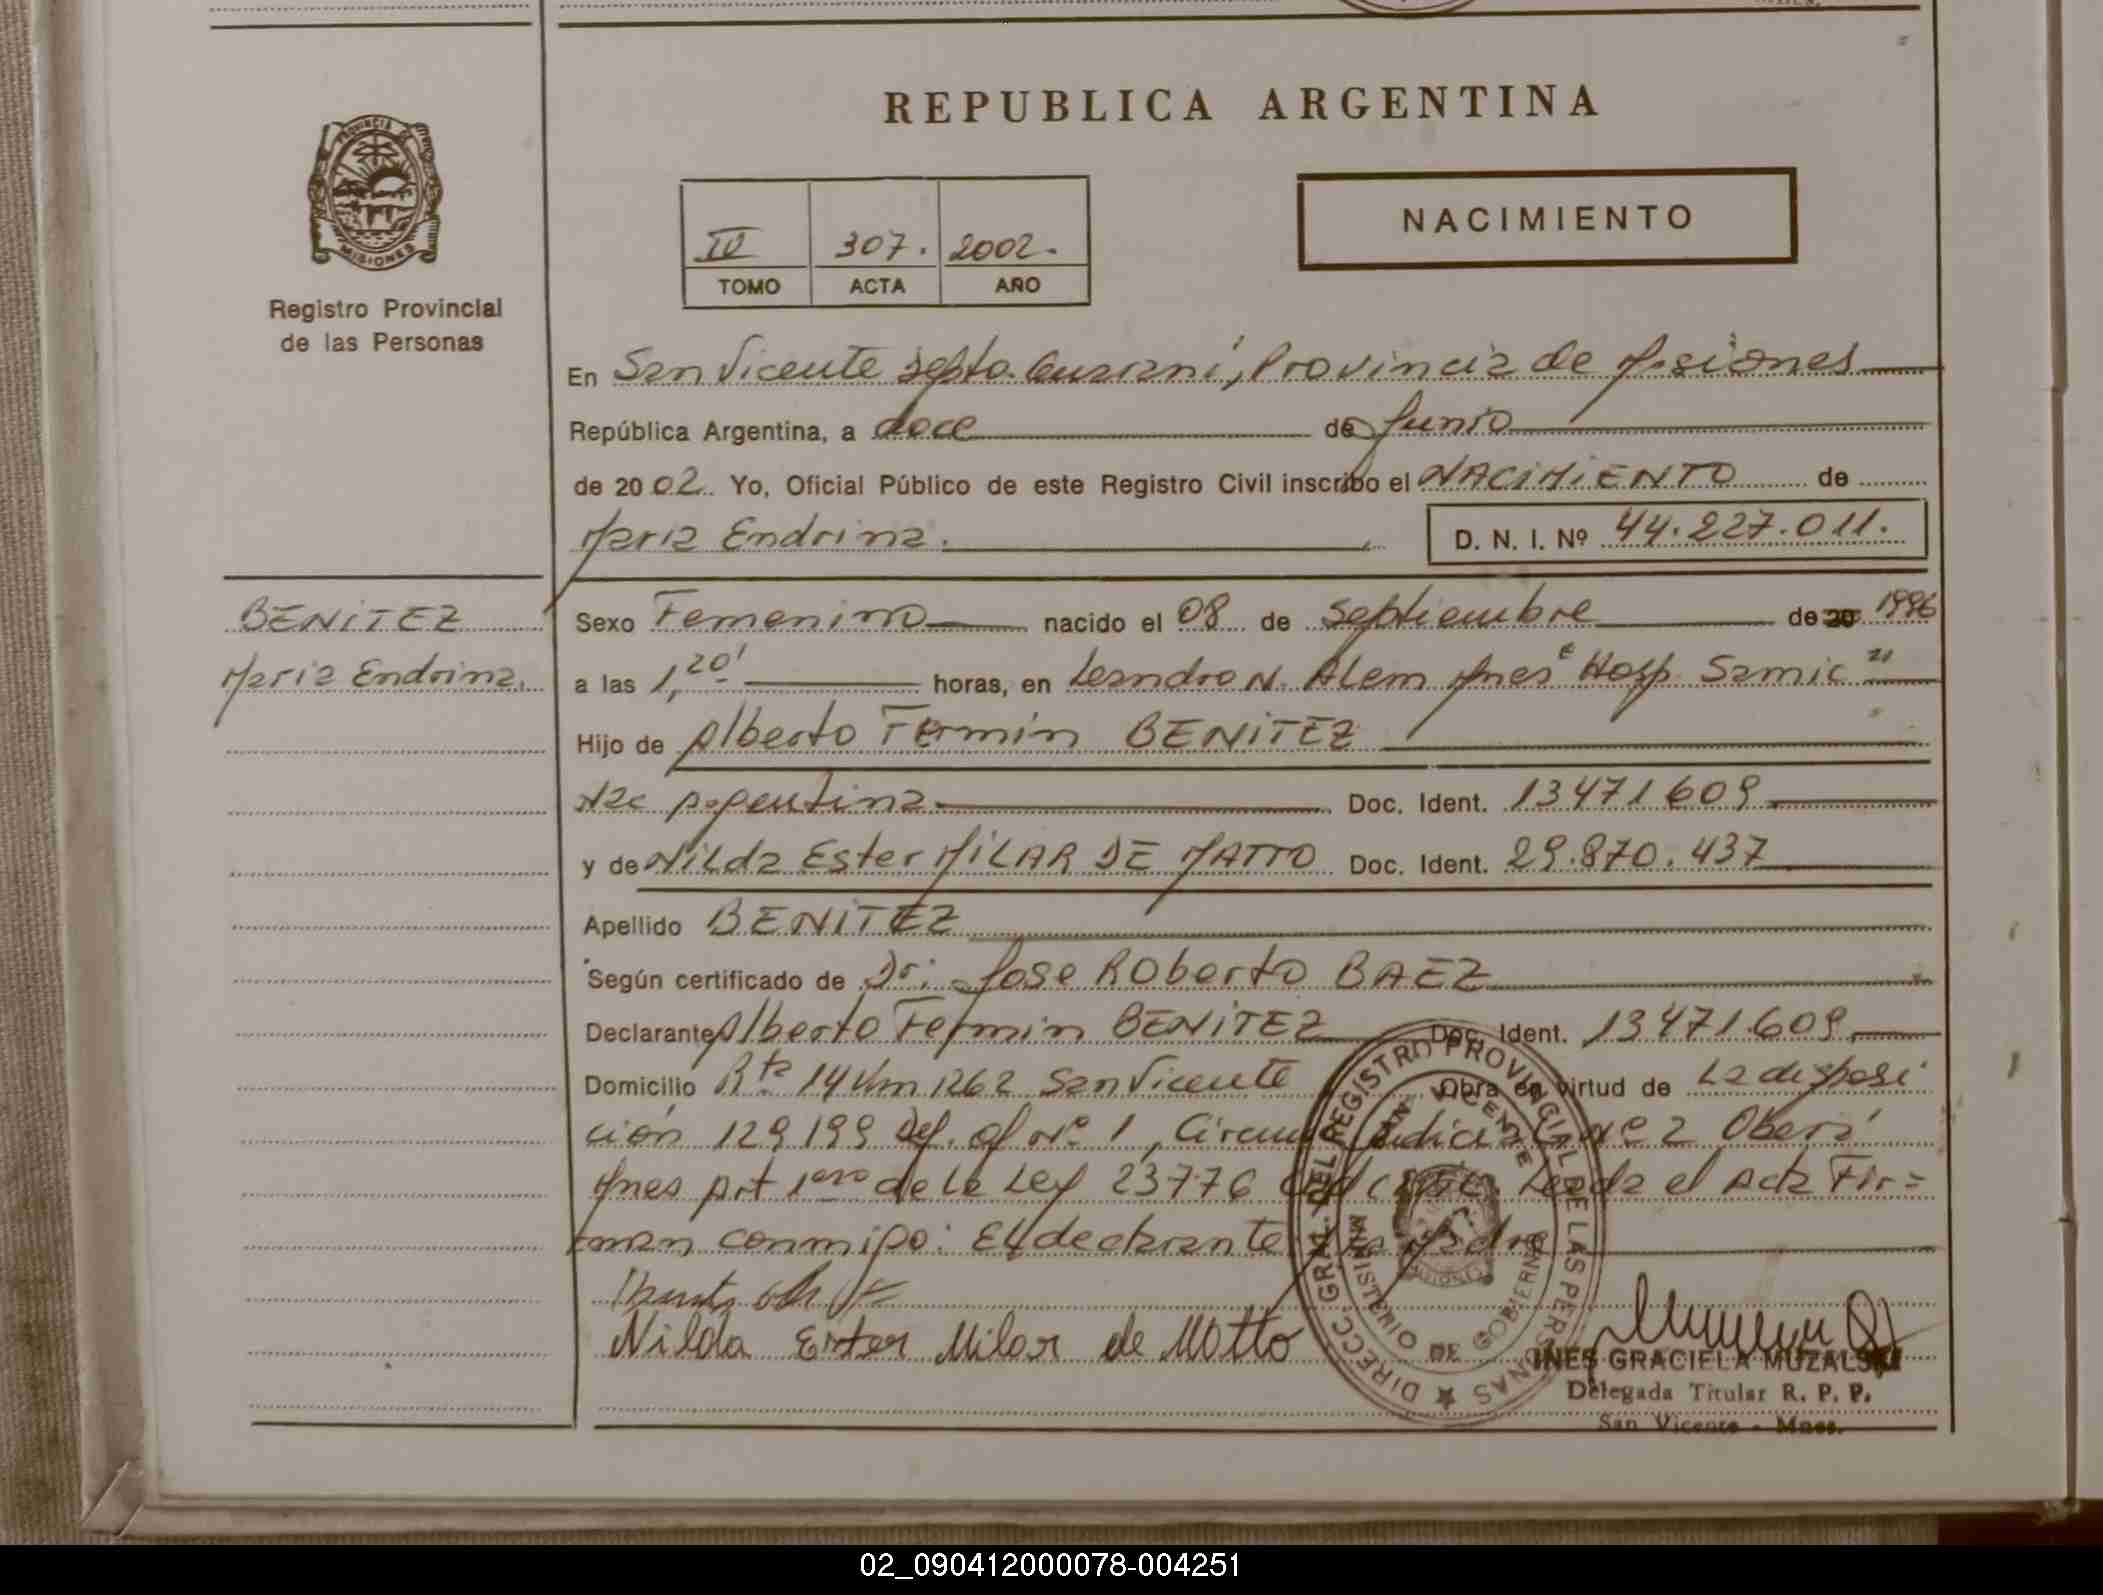 REPUBLICA ARGENTINA
NACIMIENTO
IV 307. 2002.
TOMO ACTA AÑO
PROVINCIA DE MISIONES
Registro Provincial
de las Personas
En San Vicente Depto. Guaraní, Provincia de Misiones
República Argentina, a doce de Junio
de 2002. Yo, Oficial Público de este Registro Civil inscribo el NACIMIENTO de
Maria Endrina. D. N. I. Nº 44.227.011.
BENITEZ
Maria Endrina.
Sexo Femenino nacido el 08 de Septiembre de 20 1996
a las 1,20' horas, en Leandro N. Alem Mnes "Hosp. Samic"
Hijo de Alberto Fermin BENITEZ
Nac Argentina Doc. Ident. 13471609
y de Nilda Ester MILAR DE MATTO Doc. Ident. 29.870.437
Apellido BENITEZ
Según certificado de Dr. Jose Roberto BAEZ
Declarante Alberto Fermin BENITEZ Doc. Ident. 13471.609
Domicilio Rta 14 Km 1262 San Vicente Obra en virtud de La disposi
ción 129199 Def. of Nº 1, Circuns Judicial Nº 2 Oberá
Mnes Art 1ero de la Ley 23776 Leida el Acta Fir=
man conmigo: El declarante y la Madre
Nilda Ester Milar de Motto
DIRECC. GRAL. DEL REGISTRO PROVINCIAL DE LAS PERSONAS
SAN VICENTE
MINISTERIO DE GOBIERNO
MISIONES
INES GRACIELA MUZALSKI
Delegada Titular R. P. P.
San Vicente - Mnes.
02_090412000078-004251